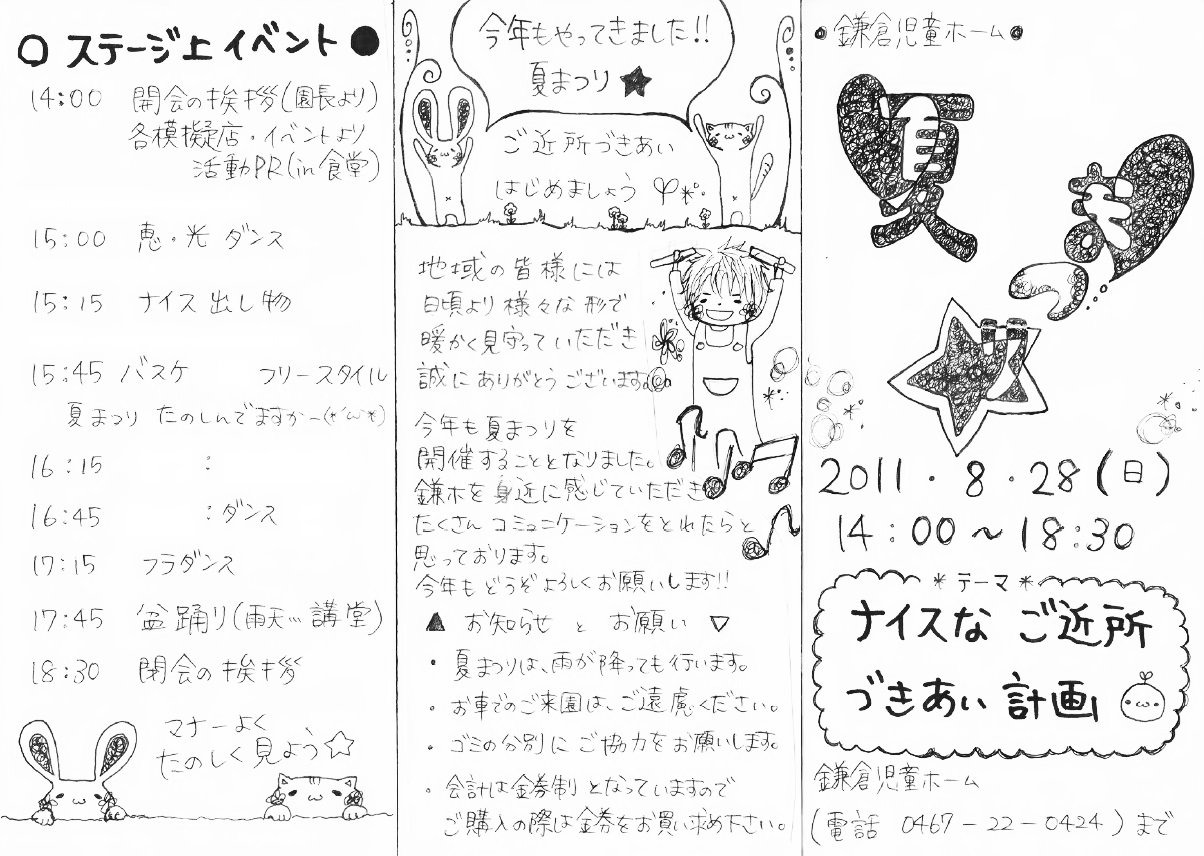 ○ ステージ上イベント ●
14:00 開会の挨拶(園長より)
各模擬店・イベントより
活動PR(in食堂)
15:00 恵・光 ダンス
15:15 ナイス出し物
15:45 バスケ フリースタイル
夏まつり たのしんでますかー(*'ω'*)
16:15 :
16:45 :ダンス
17:15 フラダンス
17:45 盆踊り(雨天…講堂)
18:30 閉会の挨拶
マナーよく
たのしく見よう☆
今年もやってきました!!
夏まつり★
ご近所づきあい
はじめましょう
地域の皆様には
日頃より様々な形で
暖かく見守っていただき
誠にありがとうございます。
今年も夏まつりを
開催することとなりました。
鎌ホを身近に感じていただき
たくさんコミュニケーションをとれたらと
思っております。
今年もどうぞよろしくお願いします!!
▲ お知らせ と お願い ▽
・夏まつりは、雨が降っても行います。
・お車でのご来園は、ご遠慮ください。
・ゴミの分別にご協力をお願いします。
・会計は金券制となっていますので
ご購入の際は金券をお買い求め下さい。
●鎌倉児童ホーム●
夏まつり
2011・8・28(日)
14:00~18:30
*テーマ*
ナイスな ご近所
づきあい 計画
鎌倉児童ホーム
(電話 0467-22-0424)まで